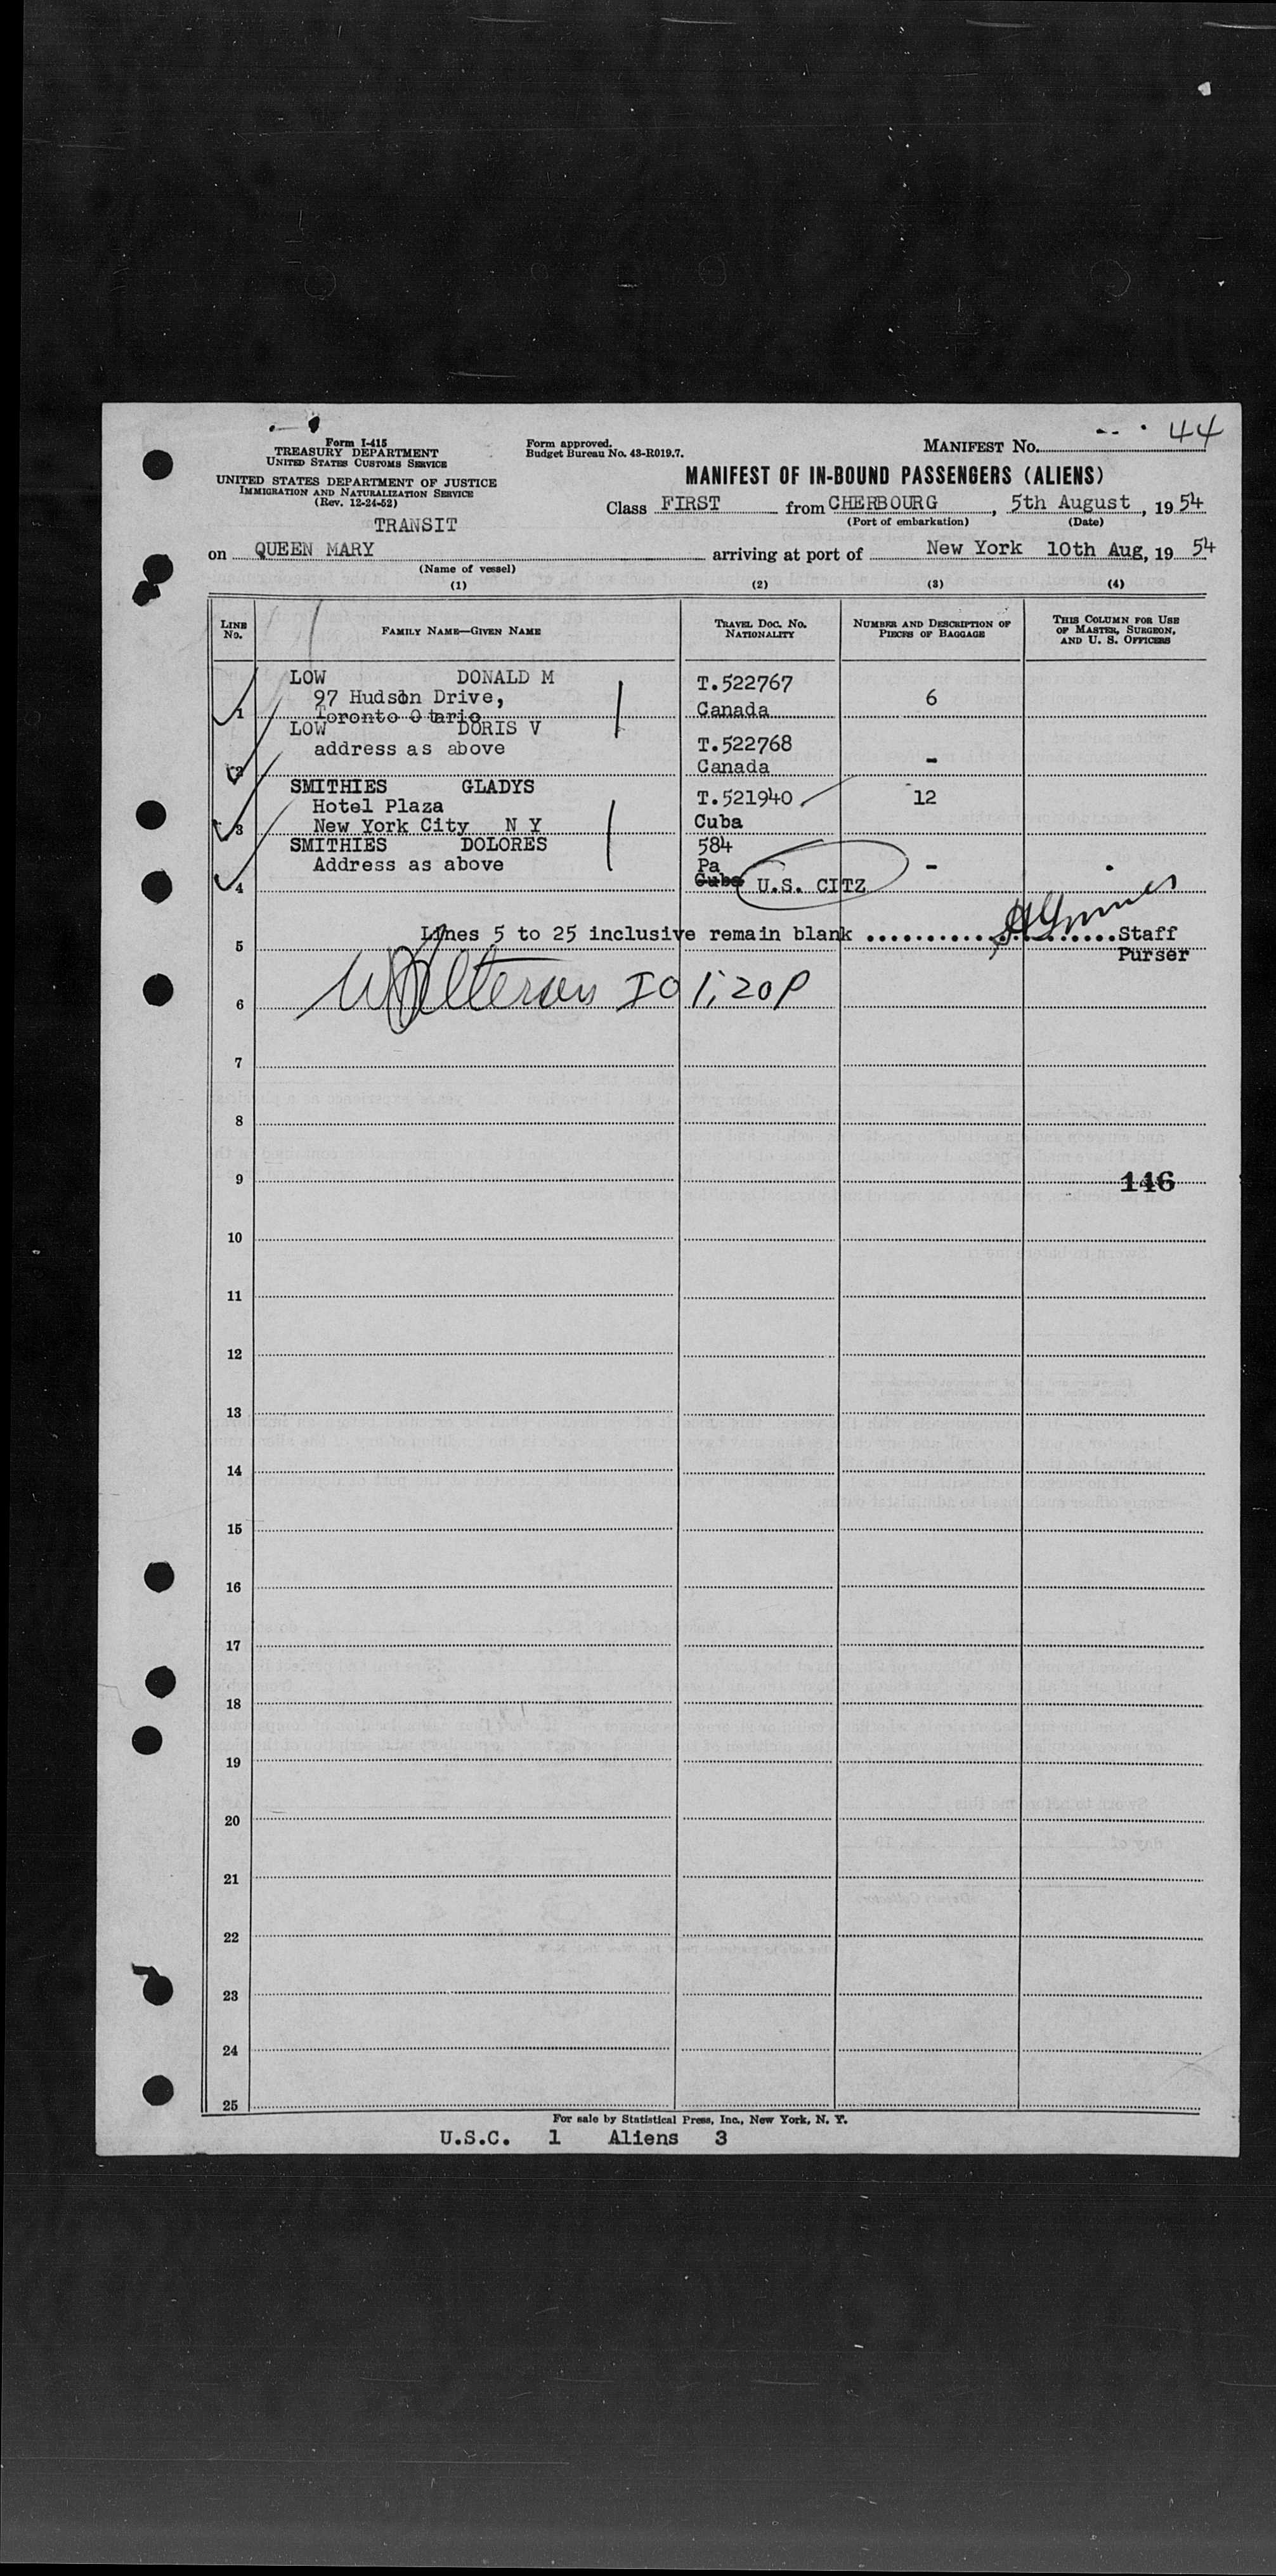 Form I-415
TREASURY DEPARTMENT
UNITED STATES CUSTOMS SERVICE
UNITED STATES DEPARTMENT OF JUSTICE
IMMIGRATION AND NATURALIZATION SERVICE
(Rev. 12-24-52)
Form approved.
Budget Bureau No. 43-R019.7.
MANIFEST No. 44
MANIFEST OF IN-BOUND PASSENGERS (ALIENS)
Class FIRST from CHERBOURG, 5th August, 1954
(Port of embarkation) (Date)
TRANSIT
on QUEEN MARY arriving at port of New York 10th Aug, 19 54
(Name of vessel)
(1) (2) (3) (4)
LINE No. FAMILY NAME—GIVEN NAME TRAVEL DOC. NO. NATIONALITY NUMBER AND DESCRIPTION OF PIECES OF BAGGAGE THIS COLUMN FOR USE OF MASTER, SURGEON, AND U. S. OFFICERS
LOW DONALD M T.522767
97 Hudson Drive, 6
1 Toronto O tario Canada
LOW DORIS V T.522768
address as above -
2 Canada
SMITHIES GLADYS T.521940 12
Hotel Plaza
3 New York City N Y Cuba
SMITHIES DOLORES 584
Address as above Pa -
4 Cuba U.S. CITZ
5 Lines 5 to 25 inclusive remain blank ..................... Staff
Purser
6 IO 1:20P
7
8
9 146
10
11
12
13
14
15
16
17
18
19
20
21
22
23
24
25
For sale by Statistical Press, Inc., New York, N. Y.
U.S.C. 1 Aliens 3